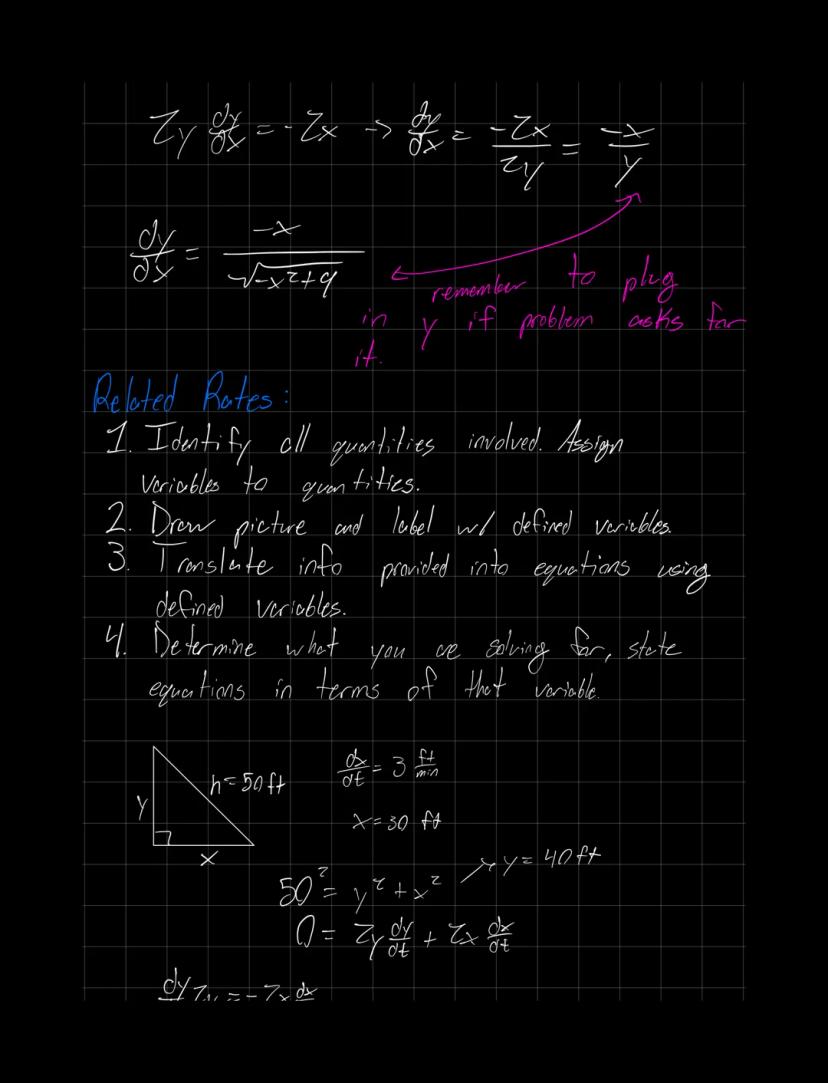 2y dy/dx = -2x -> dy/dx = -2x/2y = -x/y
dy/dx = -x/√-x²+9
remember to plug
in y if problem asks for
it.
Related Rates:
1. Identify all quantities involved. Assign
variables to quantities.
2. Draw picture and label w/ defined variables.
3. Translate info provided into equations using
defined variables.
4. Determine what you are solving for, state
equations in terms of that variable.
h=50ft
dx/dt = 3 ft/min
y
x=30 ft
x
y=40ft
50² = y² + x²
0 = 2y dy/dt + 2x dx/dt
dy 2y = -2x dx